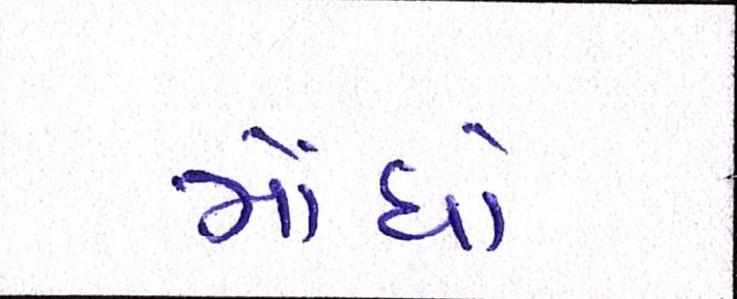 મોંઘો